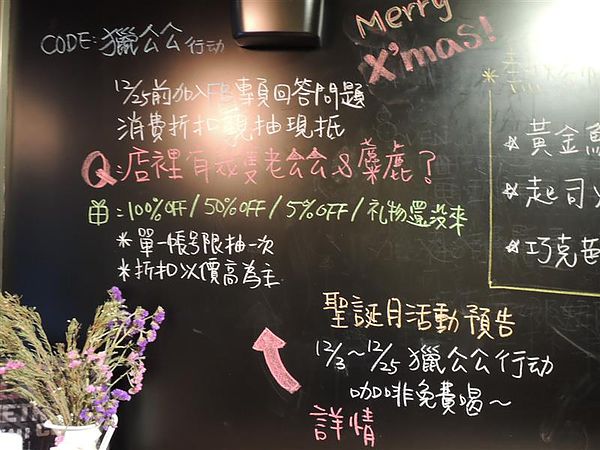 CODE:獵公公行动
Merry
X'mas!
12/25前加入FB專頁回答問題
消費折扣現抽現抵
Q:店裡有幾隻老公公&麋鹿?
:100%OFF/50%OFF/5%OFF/礼物還没來
*單一帳号限抽一次
*折扣以價高為主
黃金魚
起司
巧克
聖誕月活動預告
12/3~12/25獵公公行动
咖啡免費喝~
詳情